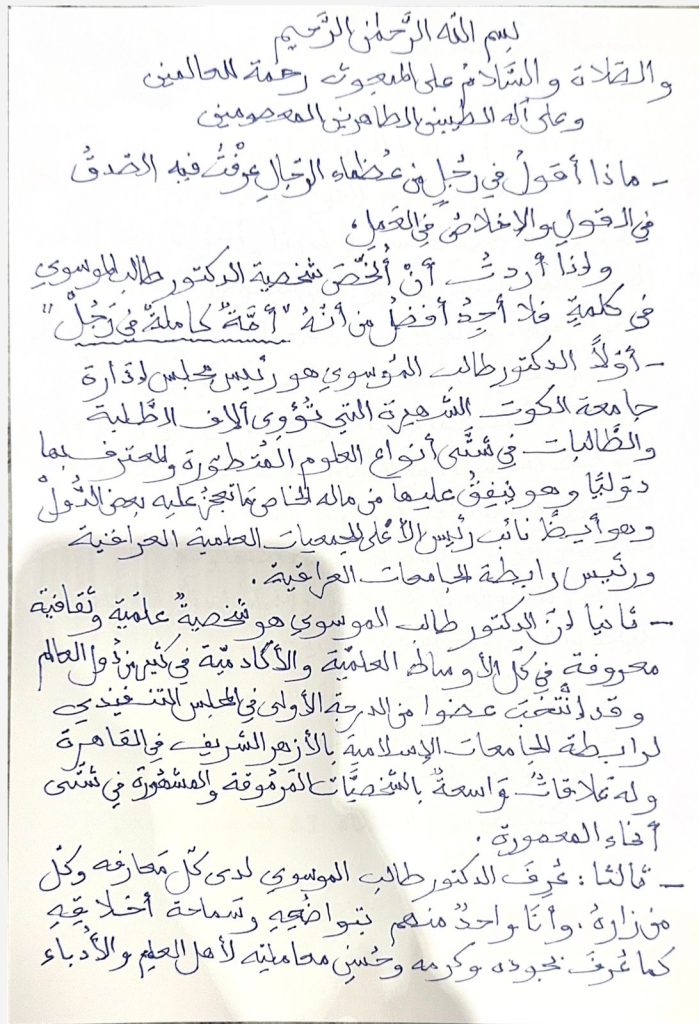 بسم الله الرَّحمٰن الرَّحيم
والصّلاة والسَّلامُ على المبعوث رحمة للعالمين
وعلى آله الطيبين الطاهرين المعصومين
- ماذا أقولُ في رجُلٍ من عُظماء الرّجالِ عرفْتُ فيه الصّدقُ
في القولِ والإخلاصُ في العَمَلِ.
وإذا أردتُ أنْ أُلخّصَ شخصية الدكتور طالب الموسوي
في كلمةٍ فلا أجدُ أفضلُ من أنّهُ "أُمَّةٌ كاملةٌ في رَجُلْ"
- أوّلاً الدكتور طالب المُوسوي هو رئيس مجلس إدارة
جامعة الكوت الشّهيرة التي تُؤوي ألاف الطَّلبة
والطَّالبات في شتَّى أنواع العلوم المُتطوّرة والمعترف بها
دوليًّا وهو يُنفِقُ عليها من ماله الخاص مَا تعجزُ عليه بعض الدُّوَلْ
وهو أيضًا نائب رئيس الأعلى للجمعيات العلمية العراقية
ورئيس رابطة الجامعات العراقية.
- ثانيا إنّ الدكتور طالب الموسوي هو شخصيةٌ علميّة وثقافية
معروفة في كلّ الأوساط العلميّة والأكادميّة في كثير من دُول العالم
وقد انْتُخِبَ عضوا من الدرجة الأولى في المجلس التنفيذي
لرابطة الجامعات الإسلامية بالأزهر الشريف في القاهرة
وله عَلاقاتٌ وَاسعةٌ بالشّخصيَّات المَرموقة والمشهورة في شتّى
أنحاء المعمورة.
- ثالثا: عُرِفَ الدكتور طالب الموسوي لدى كلّ مَعارفه وكلّ
من زارهُ. وأنَا واحدٌ منهم بتواضُعِهِ وسَماحة أخلاقِهِ
كما عُرفَ بجوده وكرمه وحُسنِ معاملتِه لأهل العلمِ والأُدباء